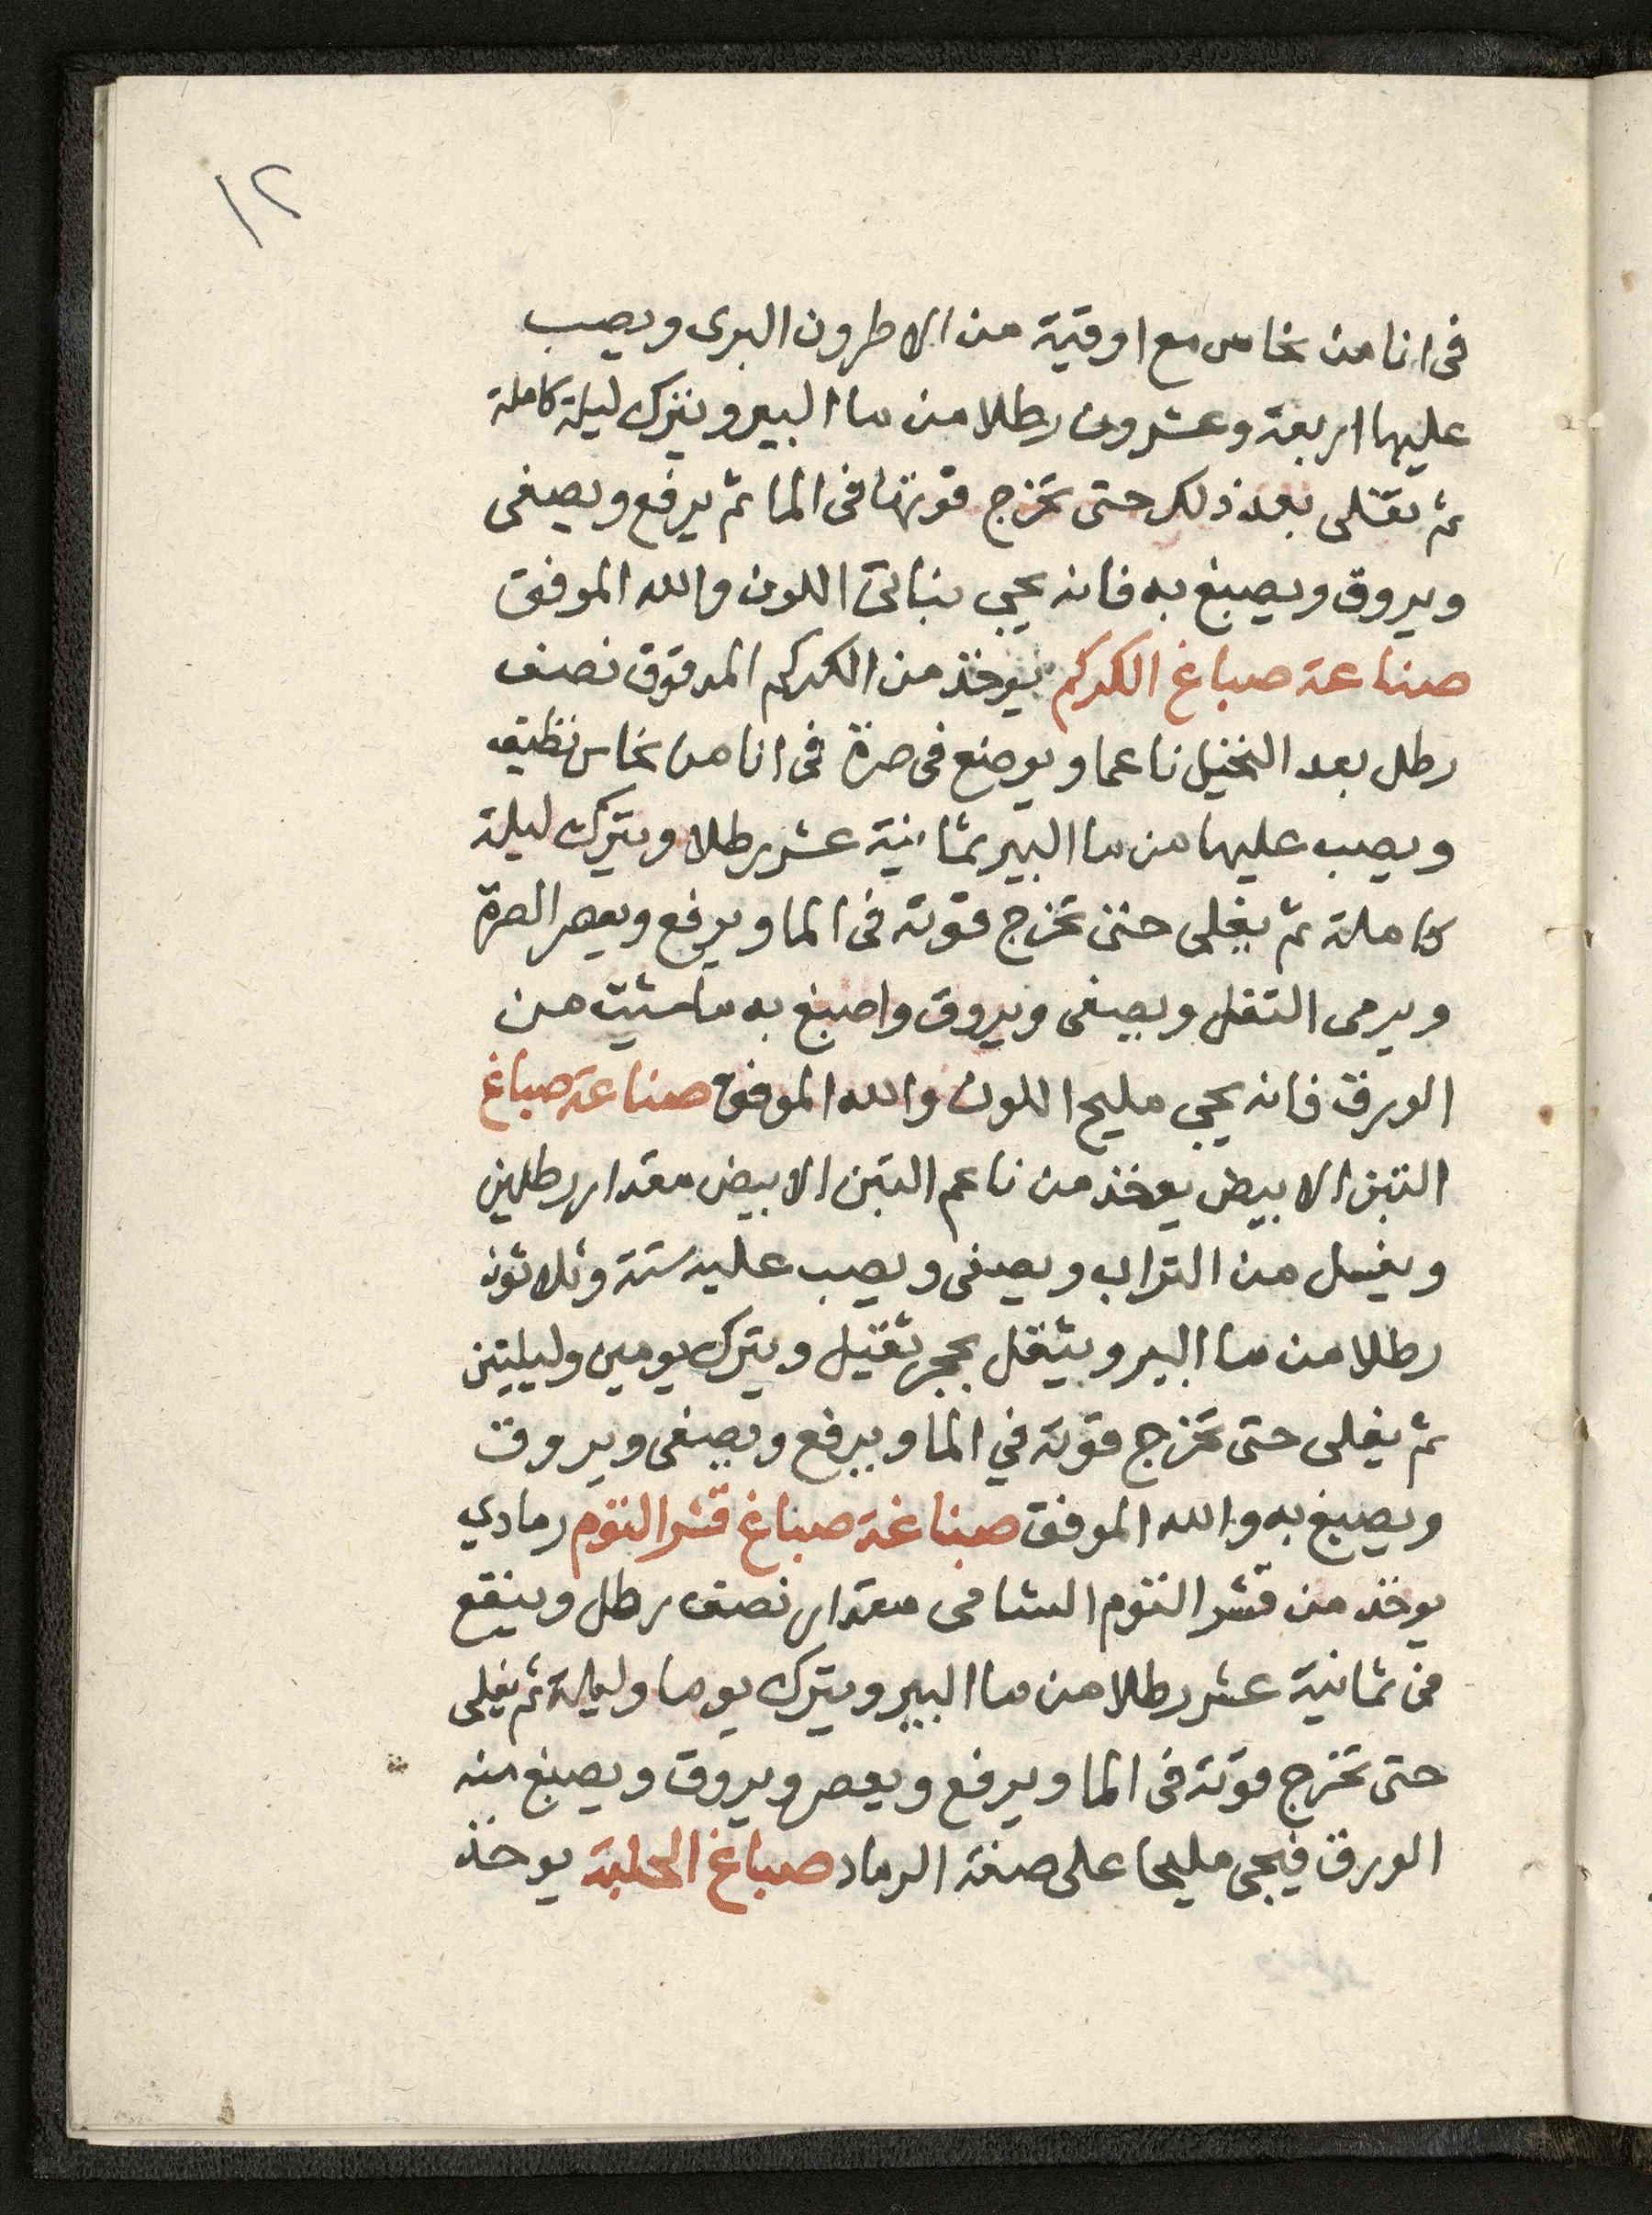 ١٢
فى انا من نحاس مع اوقية من الاطرون البرى ويصب
عليها اربعة وعشرون رطلا من ما البير ويترك ليلة كاملة
ثم تغلى بعد ذلك حتى تخرج قوتها فى الما ثم يرفع ويصفى
ويروق ويصبغ به فانه يجى نباتى اللون والله الموفق
صناعة صباغ الكركم يوخذ من الكركم المدقوق نصف
رطل بعد النخيل ناعما ويوضع فى صرة فى انا من نحاس نظيف
ويصب عليها من ما البير ثمانية عشر رطلا ويترك ليلة
كاملة ثم يغلى حتى تخرج قوته فى الما ويرفع ويعصر الصرة
ويرمى التفل ويصفى ويروق واصبغ به ما شيت من
الورق فانه يجى مليح اللون والله الموفق صناعة صباغ
التبن الابيض يوخذ من ناعم التبن الابيض مقدار رطلين
ويغسل من التراب ويصفى ويصب عليه ستة وثلاثون
رطلا من ما البير ويثقل بحجر ثقيل ويترك يومين وليليتين
ثم يغلى حتى تخرج قوته في الما ويرفع ويصفى ويروق
ويصبغ به والله الموفق صناعة صباغ قشر الثوم رمادي
يوخذ من قشر الثوم الشامى مقدار نصف رطل وينقع
فى ثمانية عشر رطلا من ما البير ويترك يوما وليلة ثم يغلى
حتى تخرج قوته فى الما ويرفع ويعصر ويروق ويصبغ منه
الورق فيجى مليحا على صفة الرماد صباغ الحلبة يوخذ